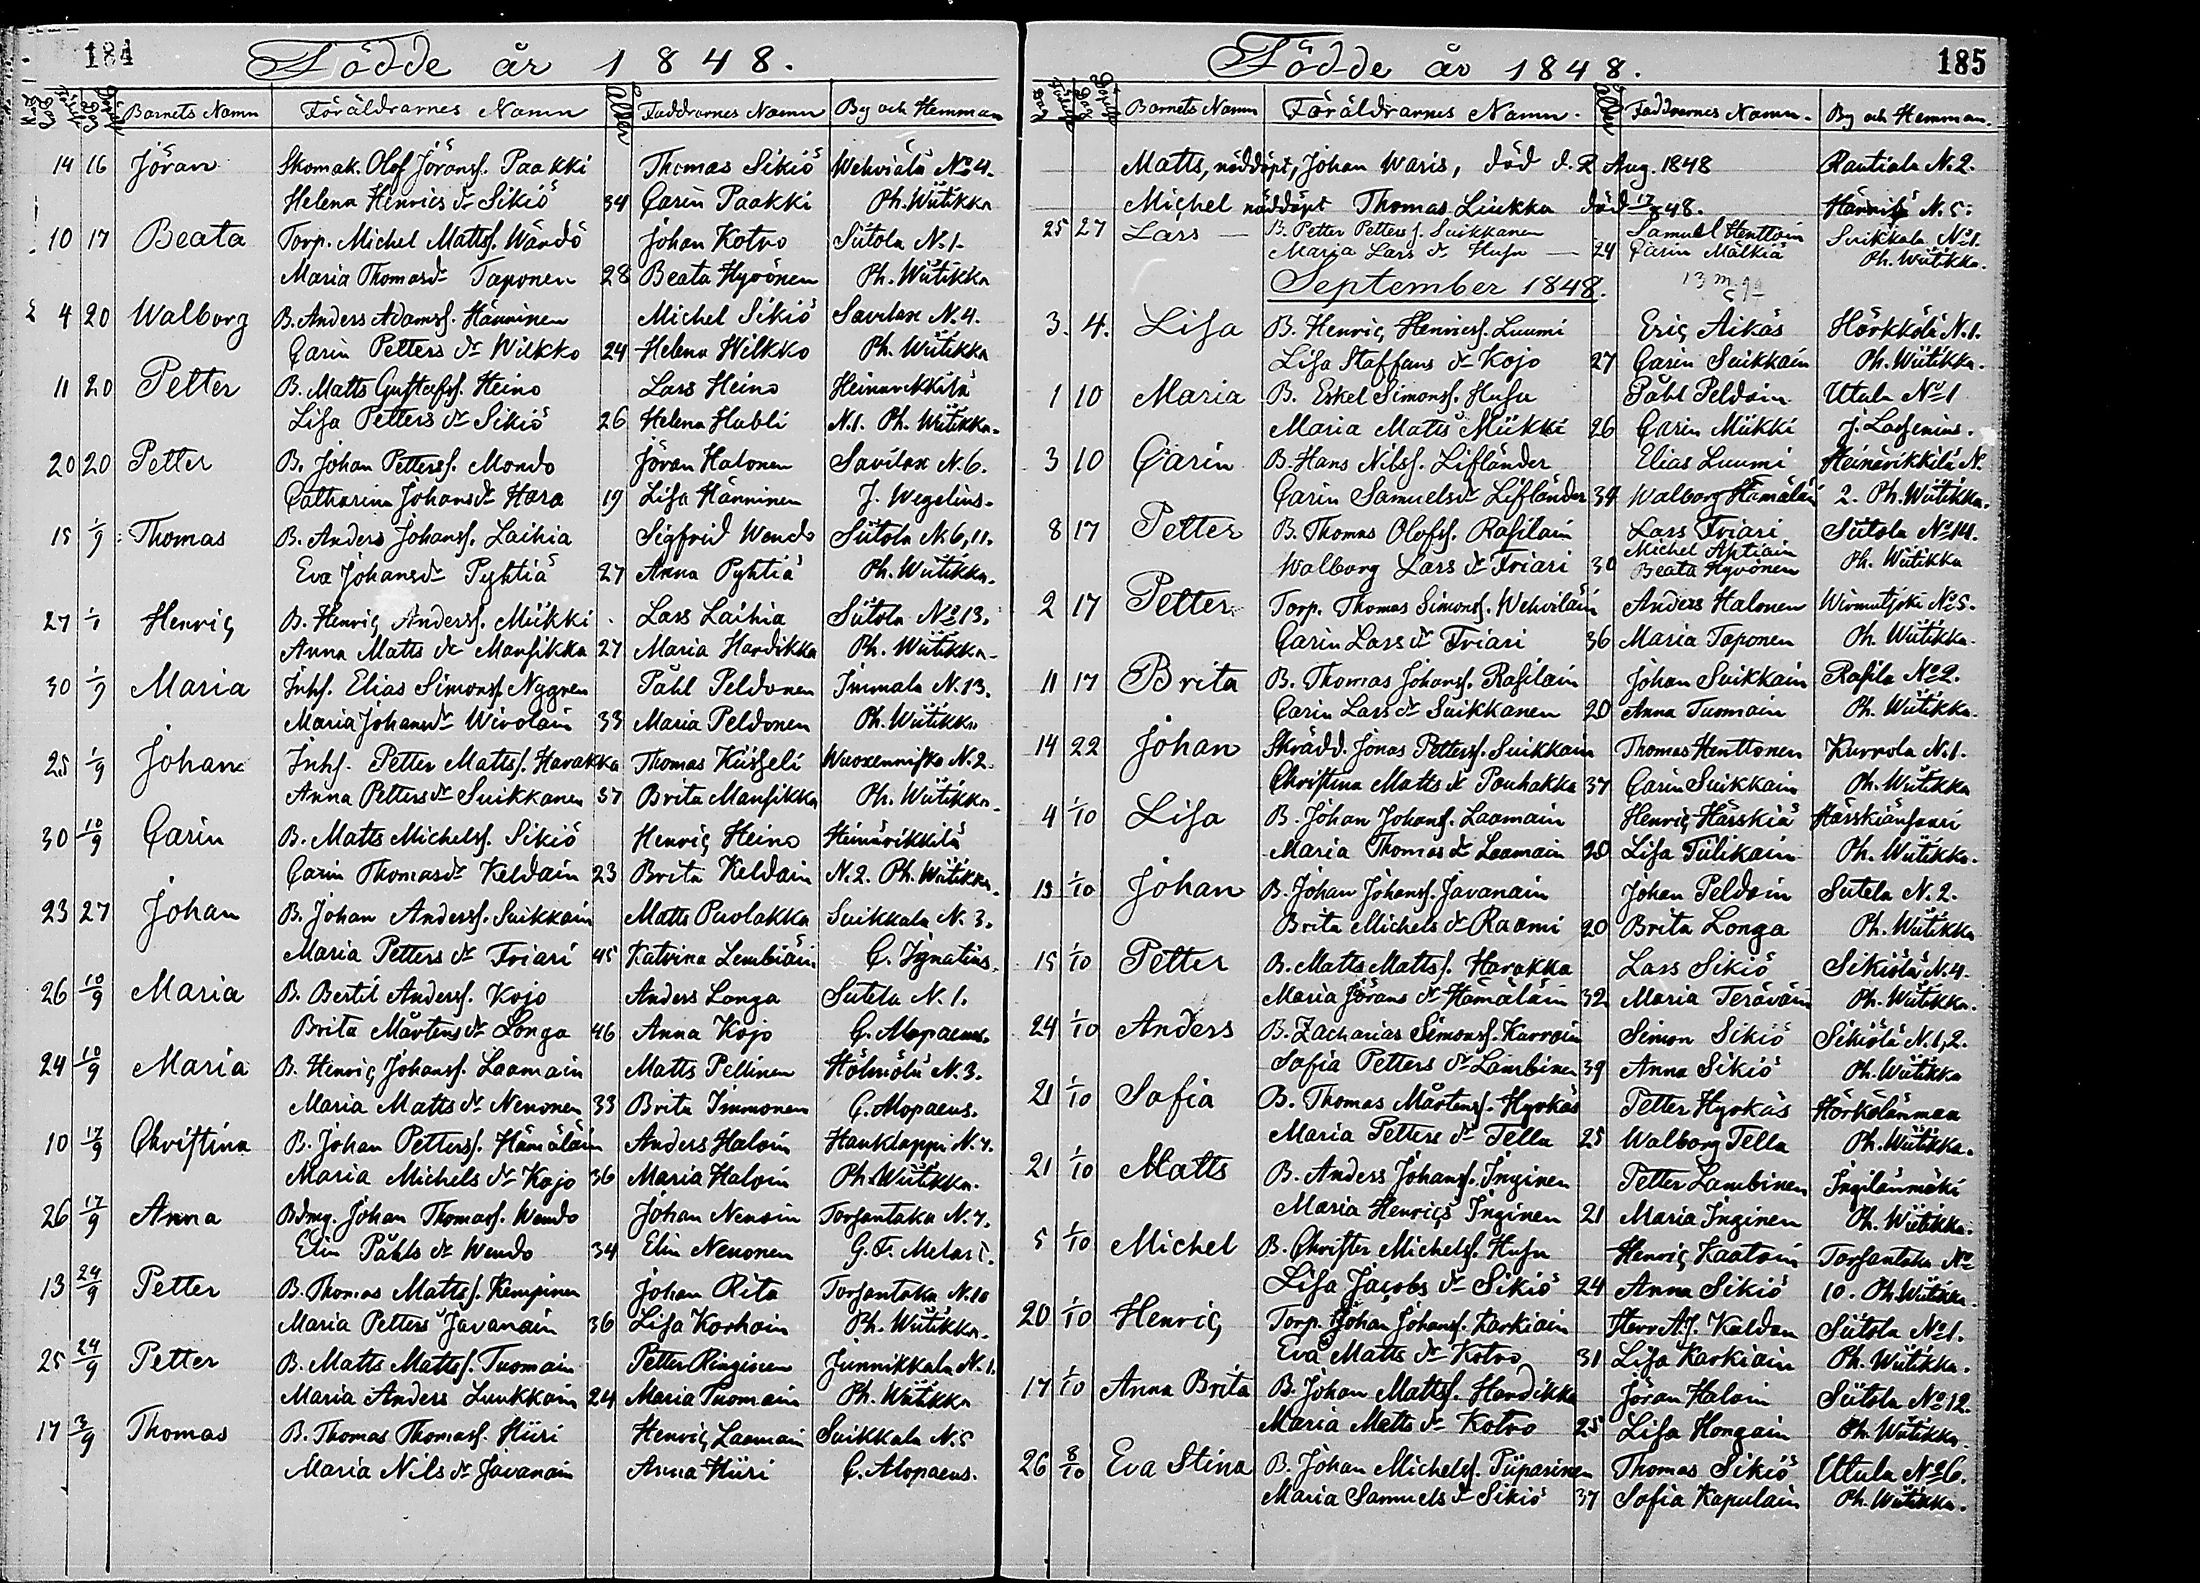 184
Födde år 1848.
Barnets Namn Föräldrarnes Namn Ålder Faddrarnes Namn By och Hemman
14 16 Jöran Skomak. Olof Jöransf. Paakki Thomas Sikiö Wehviälä No 4.
Helena Henrics dr Sikiö 34 Carin Paakki Ph. Wiitikka
10 17 Beata Torp. Michel Mattsf. Wändö Johan Kotro Siitola N. 1.
Maria Thomasdr Taponen 28 Beata Hyvönen Ph. Wiitikka
4 20 Walborg B. Anders Adamsf. Hänninen Michel Sikiö Savilax N. 4.
Carin Petters dr Wilkko 24 Helena Wilkko Ph. Wiitikka
11 20 Petter B. Matts Gustafsf. Heino Lars Heino Heinävikkilä
Lisa Petters dr Sikiö 26 Helena Habli N. 1. Ph. Wiitikka.
20 20 Petter B. Johan Pettersf. Mondo Jöran Halonen Savilax N. 6.
Catharina Johansdr Hara 19 Lisa Hänninen J. Wegelius.
15 1/9 Thomas B. Anders Johansf. Laihia Sigfrid Wendo Siitola N. 6, 11.
Eva Johansdr Pyhtiä 27 Anna Pyhtiä Ph. Wiitikka.
27 1/9 Henric B. Henric Andersf. Miikki Lars Laihia Siitola No 13.
Anna Matts dr Mansikka 27 Maria Hardikka Ph. Wiitikka
30 1/9 Maria Inhs. Elias Simonsf. Nygren Påhl Peldonen Immala N. 13.
Maria Johansdr Wirolain 33 Maria Peldonen Ph. Wiitikka
25 1/9 Johan Inhs. Petter Mattsf. Harakka Thomas Kiisseli Wuoxenniska N. 2.
Anna Pettersdr Suikkanen 37 Brita Mansikka Ph. Wiitikka
30 10/9 Carin B. Matts Michelsf. Sikiö Henric Heino Heinävikkilä
Carin Thomasdr Keldain 23 Brita Keldain N. 2. Ph. Wiitikka.
23 27 Johan B. Johan Andersf. Suikkain Matts Puolakka Suikkala N. 3.
Maria Petters dr Friari 45 Katrina Lembiäin C. Ignatius.
26 10/9 Maria B. Bertil Andersf. Kojo Anders Longa Sutela N. 1.
Brita Mårtensdr Longa 46 Anna Kojo C. Alopaeus.
24 10/9 Maria B. Henric Johansf. Laamain Matts Pellinen Hölmölä N. 3.
Maria Matts dr Nenonen 33 Brita Immonen C. Alopaeus.
10 17/9 Christina B. Johan Pettersf. Hämäläin Anders Haloin Hauklappi N. 7.
Maria Michels dr Kojo 36 Maria Haloin Ph. Wiitikka.
26 17/9 Anna Bdmg. Johan Thomasf. Wendo Johan Nenoin Torsantaka N. 7.
Elin Påhls dr Wendo 34 Elin Nenonen G. F. Melart.
13 24/9 Petter B. Thomas Mattsf. Kempinen Johan Rita Torsantaka N. 10
Maria Petters Javanain 36 Lisa Korhoin Ph. Wiitikka.
25 24/9 Petter B. Matts Mattsf. Tuomain Petter Ringinen Junnikkala N. 1.
Maria Anders Luukkain 24 Maria Tuomain Ph. Wiitikka
17 3/9 Thomas B. Thomas Thomasf. Hiiri Henric Laamain Suikkala N. 5
Maria Nils dr Javanain Anna Hiiri C. Alopaeus.
185
Födde år 1848.
Barnets Namn Föräldrarnes Namn. Ålder Faddrarnes Namn. By och Hemman.
Matts, näddöpt, Johan Waris, död d. 2 Aug. 1848 Rautiala N. 2.
Michel näddöpt Thomas Liukka död 17/8 48. Hännilä N. 5.
25 27 Lars — B. Petter Pettersf. Suikkanen Samuel Henttoin Suikkala No 1.
Maria Lars dr Husu — 24 Carin Mälkiä Ph. Wiitikka.
September 1848.
3. 4. Lisa B. Henric Henricsf. Luumi Eric Äikäs Hörkkölä N. 1.
Lisa Staffans dr Kojo 27 Carin Suikkain Ph. Wiitikka.
1 10 Maria B. Eskel Simonsf. Husu Påhl Peldoin Utula No 1
Maria Matts Miikki 26 Carin Miikki J. Lassenius.
3 10 Carin B. Hans Nilsf. Lifländer Elias Luumi Heinävikkilä N.
Carin Samuelsdr Lifländer 34 Walborg Hämäläin 2. Ph. Wiitikka.
8 17 Petter B. Thomas Olofsf. Rasilain Lars Friari Siitola No 14.
Michel Ahtiain
Walborg Lars dr Friari 30 Beata Hyvönen Ph. Wiitikka
2 17 Petter Torp. Thomas Simonsf. Wehviläin Anders Halonen Wirmutjoki No 5.
Carin Lars dr Friari 36 Maria Taponen Ph. Wiitikka.
11 17 Brita B. Thomas Johansf. Rasilain Johan Suikkain Rasila No 2.
Carin Lars dr Suikkanen 20 Anna Tuomain Ph. Wiitikka.
14 22 Johan Skrädd. Jonas Pettersf. Suikkain Thomas Henttonen Kurrola N. 1.
Christina Matts dr Pouhakka 37 Carin Suikkain Ph. Wiitikka
4 1/10 Lisa B. Johan Johansf. Laamain Henric Härskiä Härskiänsaari
Maria Thomas dr Laamain 20 Lisa Tiilikain Ph. Wiitikka.
13 1/10 Johan B. Johan Johansf. Javanain Johan Peldoin Sutela N. 2.
Brita Michels dr Raami 20 Brita Longa Ph. Wiitikka
15 1/10 Petter B. Matts Mattsf. Harakka Lars Sikiö Sikiölä N. 4.
Maria Jörans dr Hämäläin 32 Maria Teräväin Ph. Wiitikka.
24 1/10 Anders B. Zacharias Simonsf. Kurroin Simon Sikiö Sikiölä N. 1, 2.
Sofia Petters dr Lambinen 39 Anna Sikiö Ph. Wiitikka
21 1/10 Sofia B. Thomas Mårtensf. Hyrkäs Petter Hyrkäs Hörkölänmaa
Maria Petters dr Tella 25 Walborg Tella Ph. Wiitikka.
21 1/10 Matts B. Anders Johansf. Inginen Petter Lambinen Ingilänmäki
Maria Henrics Inginen 21 Maria Inginen Ph. Wiitikka.
5 1/10 Michel B. Christer Michelsf. Husu Henric Kaatoin Torsantaka No
Lisa Jacobs dr Sikiö 24 Anna Sikiö 10. Ph. Wiitikka.
20 1/10 Henric Torp. Johan Johansf. Karkiain Herr A. J. Kaldan Siitola No 1.
Eva Matts dr Kotro 31 Lisa Karkiain Ph. Wiitikka.
17 1/10 Anna Brita B. Johan Mattsf. Hardikka Jöran Haloin Siitola No 12.
Maria Matts dr Kotro 25 Lisa Hongain Ph. Wiitikka.
26 8/10 Eva Stina B. Johan Michelsf. Piiparinen Thomas Sikiö Utula No 6.
Maria Samuels dr Sikiö 37 Sofia Kapulain Ph. Wiitikka.